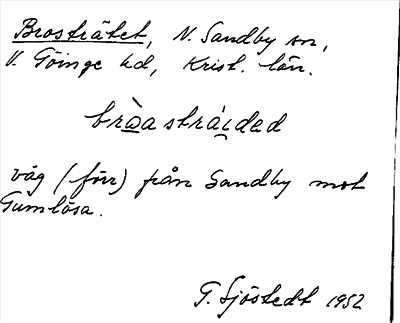 Brosträtet, N. Sandby sn,
V. Göinge hd, Krist. län.
bròastrái̯ded
väg (förr) från Sandby mot
Gumlösa.
G. Sjöstedt 1952